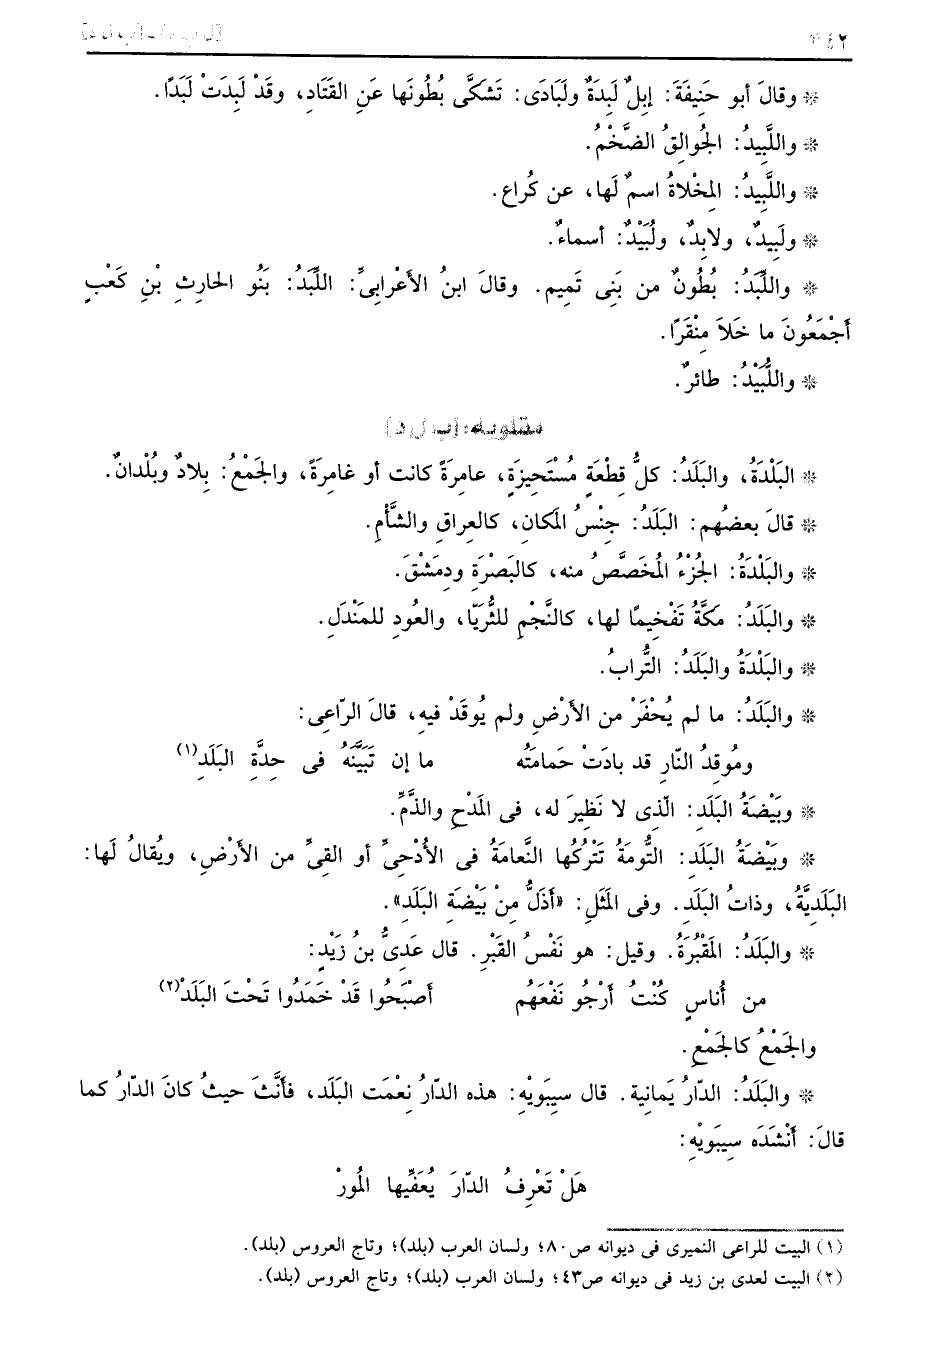 * وقالَ أبو حَنِيفَةَ: إبِلٌ لَبِدَةٌ ولَبَادَى: تَشكَّى بُطُونَها عَنِ القَتَادِ، وقَدْ لَبِدَتْ لَبَدًا.
* واللَّبِيدُ: الجُوالِقُ الضَّخْمُ.
* واللَّبِيدُ: المِخْلاةُ اسمٌ لَها، عن كُراعٍ.
* ولَبِيدٌ، ولابِدٌ، ولُبَيْدٌ: أسماءٌ.
* واللِّبَدُ: بُطُونٌ من بَنِى تَمِيم. وقالَ ابنُ الأَعْرابِىِّ: اللِّبَدُ: بَنُو الحارِثِ بْنِ كَعْبٍ
أَجْمَعُونَ ما خَلاَ مِنْقَرًا.
* واللُّبَيْدُ: طائرٌ.
مقلوبه: [ب ل د]
* البَلْدَةُ، والبَلَدُ: كلُّ قِطْعَةٍ مُسْتَحِيزَةٍ، عامِرَةً كانت أو غامِرَةً، والجَمْعُ: بِلادٌ وبُلْدانٌ.
* قالَ بعضُهم: البَلَدُ: جِنْسُ المَكانِ، كالعِراقِ والشَّأْمِ.
* والبَلْدَةُ: الجُزْءُ المُخَصَّصُ منه، كالبَصْرَةِ ودِمَشْقَ.
* والبَلَدُ: مَكَّةُ تَفْخِيمًا لها، كالنَّجْمِ للثُّرَيّا، والعُودِ للمَنْدَلِ.
* والبَلْدَةُ والبَلَدُ: التُّرابُ.
* والبَلَدُ: ما لم يُحْفَرْ من الأَرْضِ ولم يُوقَدْ فيهِ، قالَ الرّاعِى:
ومُوقِدُ النّارِ قد بادَتْ حَمامَتُه ما إن تَبَيَّنَهُ فى حِدَّةِ البَلَدِ(١)
* وبَيْضَةُ البَلَدِ: الّذِى لا نَظِيرَ له، فى المَدْحِ والذَّمِّ.
* وبَيْضَةُ البَلَدِ: التُّومَةُ تَتْرُكُها النَّعامَةُ فى الأُدْحِىِّ أو القِىِّ من الأَرْضِ، ويُقالُ لَها:
البَلَدِيَّةُ، وذاتُ البَلَدِ. وفى المَثَلِ: «أذَلُّ مِنْ بَيْضَةِ البَلَدِ».
* والبَلَدُ: المَقْبُرَةُ. وقيل: هو نَفْسُ القَبْرِ. قال عَدِىُّ بنُ زَيْدٍ:
من أُناسٍ كُنْتُ أَرْجُو نَفْعَهُم أَصْبَحُوا قَدْ خَمَدُوا تَحْتَ البَلَدْ(٢)
والجَمْعُ كالجَمْعِ.
* والبَلَدُ: الدّارُ يَمانِية. قال سِيبَوَيْهِ: هذه الدّارُ نِعْمَت البَلَد، فأَنَّثَ حيثُ كانَ الدّارُ كما
قالَ: أَنْشَدَه سِيبَوَيْهِ:
هَلْ تَعْرِفُ الدّارَ يُعَفِّيها المُورْ
(١) البيت للراعى النميرى فى ديوانه ص٨٠؛ ولسان العرب (بلد)؛ وتاج العروس (بلد).
(٢) البيت لعدى بن زيد فى ديوانه ص٤٣؛ ولسان العرب (بلد)؛ وتاج العروس (بلد).